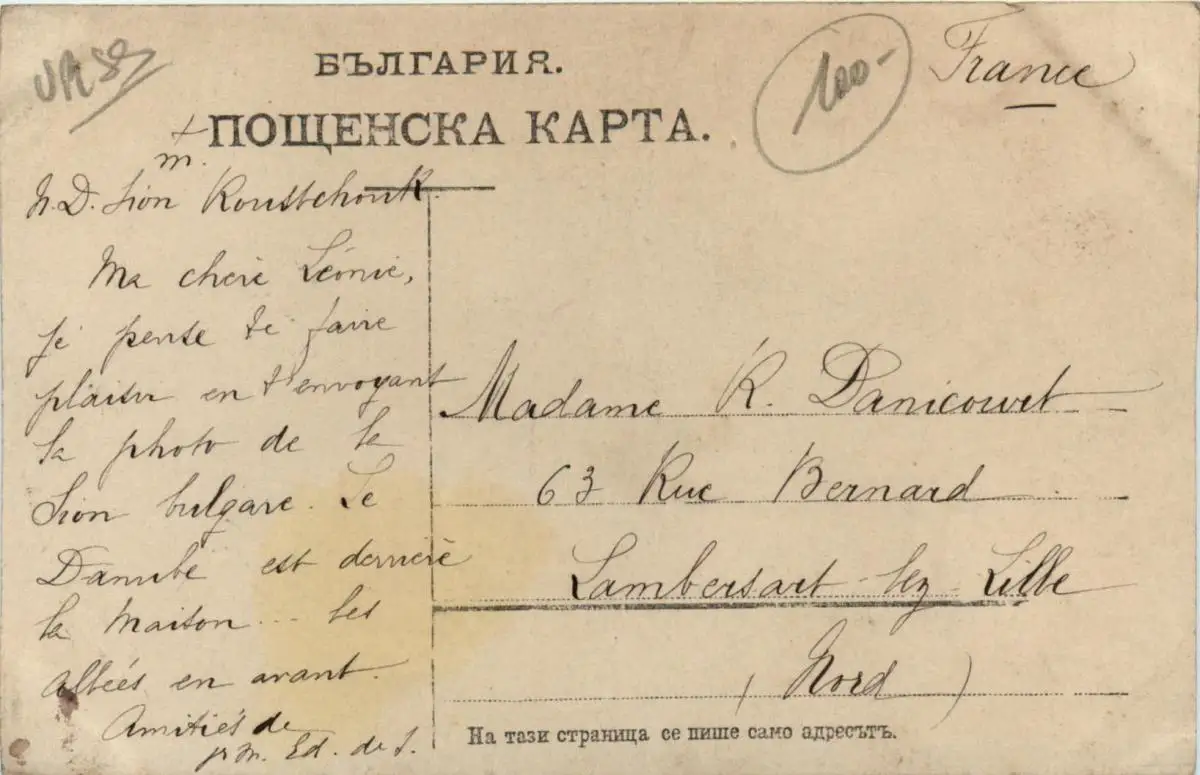 БЪЛГАРИЯ.
100-
France
+
ПОЩЕНСКА КАРТА.
m.
N.D. Sion Roustchouk.
Ma chère Léonie,
je pense te faire
plaisir en t'envoyant
la photo de la
Sion bulgare. Le
Danube est derrière
la maison... les
allées en avant.
Amitiés de
M. Ed. de S.
Madame R. Danicourt
63 Rue Bernard
Lambersart-lez Lille
(Nord)
На тази страница се пише само адресътъ.